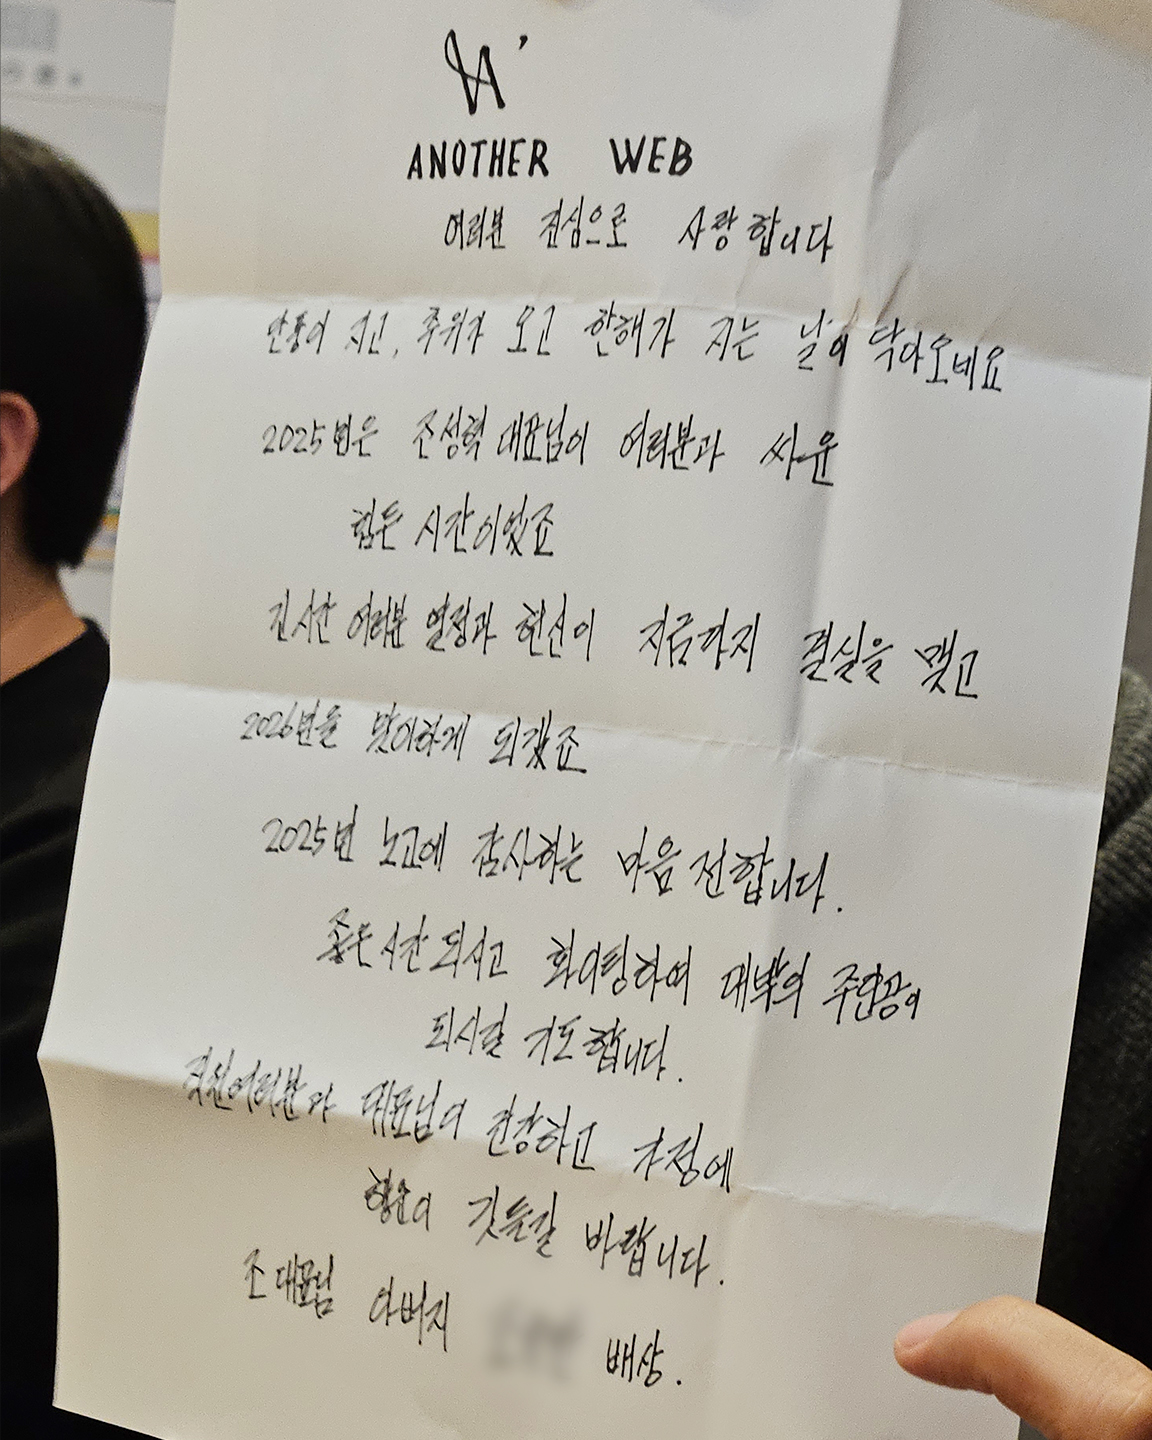 ANOTHER WEB
여러분 진심으로 사랑합니다
단풍이 지고, 추위가 오고 한해가 지는 날이 닥아오네요
2025년은 조성혁 대표님이 여러분과 싸운
힘든 시간이었죠
긴시간 여러분 열정과 헌신이 지금까지 결실을 맺고
2026년을 맞이하게 되겠죠
2025년 노고에 감사하는 마음 전합니다.
좋은시간 되시고 화이팅하여 대박의 주인공이
되시길 기도합니다.
직원여러분과 대표님이 건강하고 가정에
행운이 깃들길 바랍니다.
조 대표님 아버지 배상.